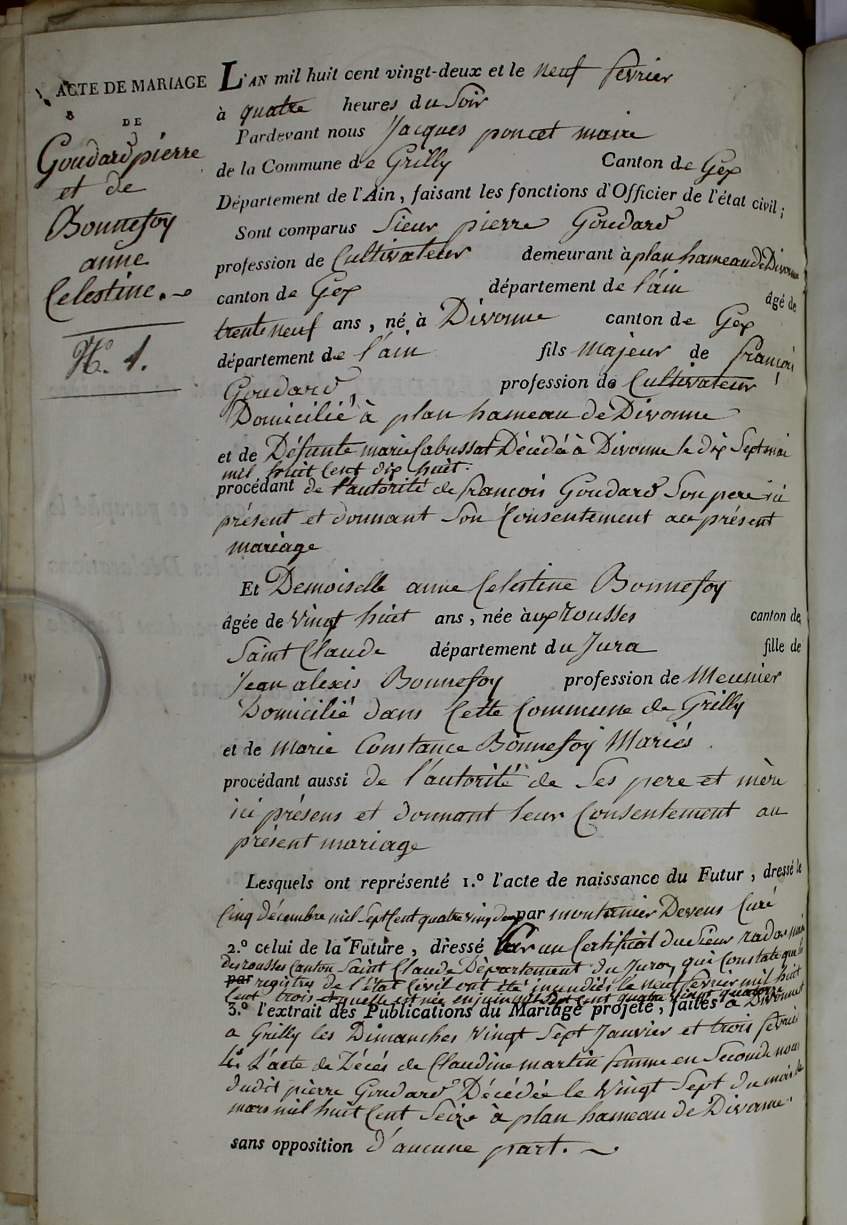 ACTE DE MARIAGE
DE
Goudard pierre
et de
Bonnefoy
anne
Celestine.
N.° 1.
L'AN mil huit cent vingt-deux et le neuf fevrier
à quatre heures du Soir
Pardevant nous Jacques poncet maire
de la Commune de Grilly Canton de Gex
Département de l'Ain, faisant les fonctions d'Officier de l'état civil;
Sont comparus Sieur pierre Goudard
profession de Cultivateur demeurant à plan hameau de Divonne
canton de Gex département de l'ain âgé de
trente neuf ans, né à Divonne canton de Gex
département de l'ain fils Majeur de françois
Goudard, profession de Cultivateur
Domicilié à plan hameau de Divonne
et de Défunte marie Cabussat Décédé à Divonne le dix Sept mai
mil huit Cent dix huit.
procédant de l'autorité de françois Goudard Son pere ici
présent et donnant Son Consentement au présent
mariage
Et Demoiselle anne Celestine Bonnefoy
âgée de Vingt huit ans, née aux rousses canton de
Saint Claude département du Jura fille de
Jean alexis Bonnefoy profession de Meunier
Domicilié dans Cette Commune de Grilly
et de Marie Constance Bonnefoy Mariés.
procédant aussi de l'autorité de Ses pere et mère
ici présens et donnant leur Consentement au
présent mariage
Lesquels ont représenté 1.° l'acte de naissance du Futur, dressé le
Cinq décembre mil Sept Cent quatre ving deux par Devens Curé
2.° celui de la Future, dressé par un Certificat du Sieur
des rousses Canton Saint Claude Département du Jura, qui Constate que les
par registres de l'état Civil ont été incendiés le neuf fevrier mil huit
Cent trois et quelle est née en juin mil Sept Cent quatre vingt quatorze
3.° l'extrait des Publications du Mariage projeté, faites à Divonne et
a Grilly les Dimanches Vingt Sept Janvier et trois fevrier
4.° L'acte de Décés de Claudine martin femme en Seconde noces
dudit pierre Goudard Décédée le Vingt Sept du mois de
mars mil huit Cent Seize à plan hameau de Divonne.
sans opposition d'aucune part.